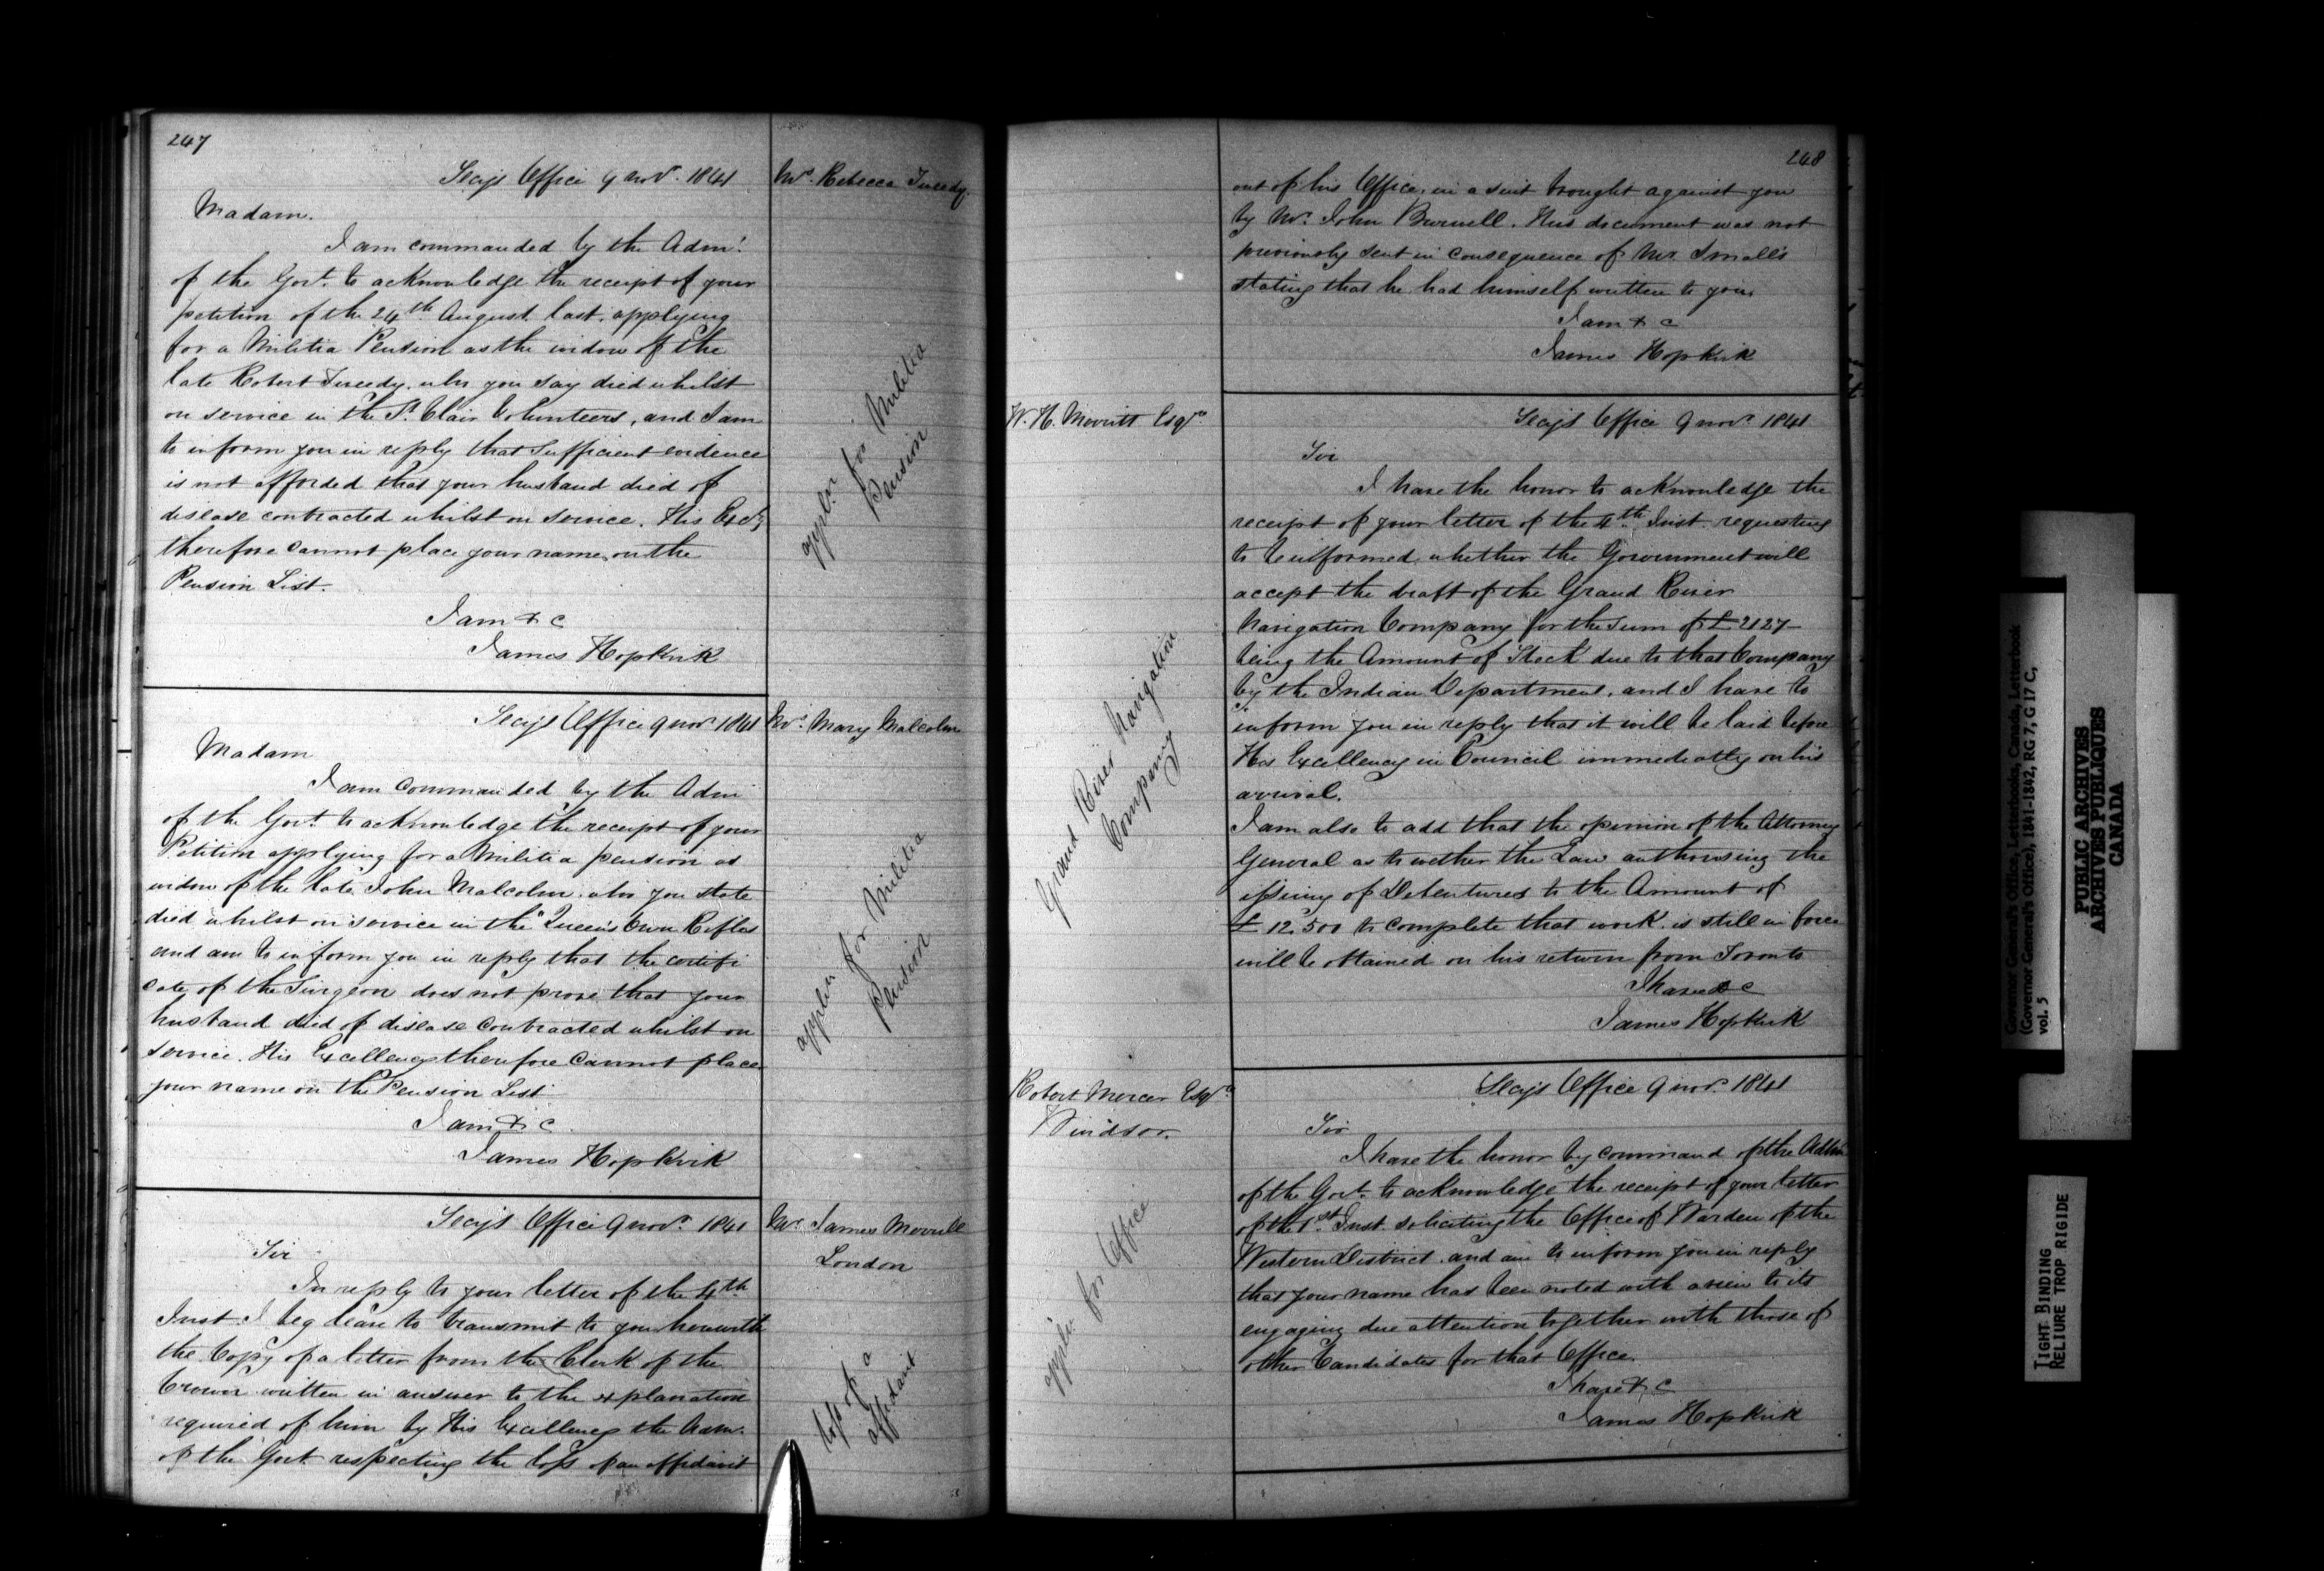 247
Secy's Office 9 Novr. 1841
Mrs. Rebecca Tweedy
Madam.
I am commanded by the Admr.
of the Govt. to acknowledge the receipt of your
petition of the 24th August last, applying
for a Militia Pension as the widow of the
late Robert Tweedy, who you say died whilst
on service in the St. Clair Volunteers, and I am
to inform you in reply that sufficient evidence
is not afforded that your husband died of
disease contracted whilst on service. His Excy
therefore cannot place your name on the
Pension List.
I am & c
James Hopkirk
appln for Militia
Pension
Secy's Office 9 Novr 1841
Mrs. Mary Malcolm
Madam
I am commanded by the Adm
of the Govt. to acknowledge the receipt of your
Petition applying for a Militia pension as
widow of the late John Malcolm who you state
died whilst on service in the "Queen's Own Rifles
and am to inform you in reply that the certifi
cate of the Surgeon does not prove that your
husband died of disease contracted whilst on
service. His Excellency therefore cannot place
your name on the Pension List
I am & c.
James Hopkirk
appln for Militia
Pension
Secy's Office 9 Novr. 1841
Mr. James Morrill
London
Sir
In reply to your letter of the 4th
Inst I beg leave to transmit to you herewith
the Copy of a letter from the Clerk of the
Crown written in answer to the explanation
required of him by His Excellency the Adm.
of the Govt. respecting the loss of an affidavit
loss of a
affidavit
248
out of his Office, in a suit brought against you
by Mr. John Burwell. This document was not
previously sent in consequence of Mr. Small's
stating that he had himself written to you.
I am & c
James Hopkirk
W. H. Merritt Esqre.
Secy's Office 9 Novr. 1841
Sir
I have the honor to acknowledge the
receipt of your letter of the 4th Inst. requesting
to be informed whether the Government will
accept the draft of the Grand River
Navigation Company for the sum of £2127
being the Amount of Stock due to that Company
by the Indian Department, and I have to
inform you in reply that it will be laid before
His Excellency in Council immediatly on his
arrival.
I am also to add that the opinion of the Attorney
General as to wether the Law authorising the
issuing of Debentures to the Amount of
£ 12.500 to complete that work is still in force
will be obtained on his return from Toronto
I have & c
James Hopkirk
Grand River Navigation
Company
Robert Mercer Esqr.
Windsor.
Secy's Office 9 Novr. 1841
Sir
I have the honor by command of the Adm
of the Govt. to acknowledge the receipt of your letter
of the 1st Inst. soliciting the Office of Warden of the
Western District. and am to inform you in reply
that your name has been noted with a view to its
engaging due attention together with those of
other Candidates for that Office.
I have & c
James Hopkirk
appln for Office
Governor General's Office, Letterbooks, Canada, Letterbook
(Governor General's Office), 1841-1842, RG 7, G 17 C,
vol. 5
PUBLIC ARCHIVES
ARCHIVES PUBLIQUES
CANADA
TIGHT BINDING
RELIURE TROP RIGIDE